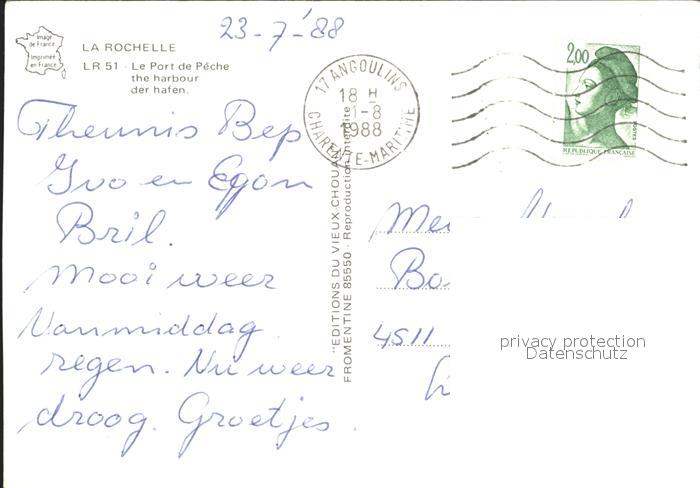 23-7-'88
Image
de France
Imprimée
en France
LA ROCHELLE
LR 51 - Le Port de Pêche
the harbour
der hafen.
17 ANGOULINS
18 H
1-8
1988
CHARENTE-MARITIME
2,00
POSTES
REPUBLIQUE FRANÇAISE
Theunis Bep
Ivo en Egon
Bril.
Mooi weer
Vanmiddag
regen. Nu weer
droog. Groetjes.
"EDITIONS DU VIEUX CHOUAN"
FROMENTINE 85550 - Reproduction interdite
4511
privacy protection
Datenschutz